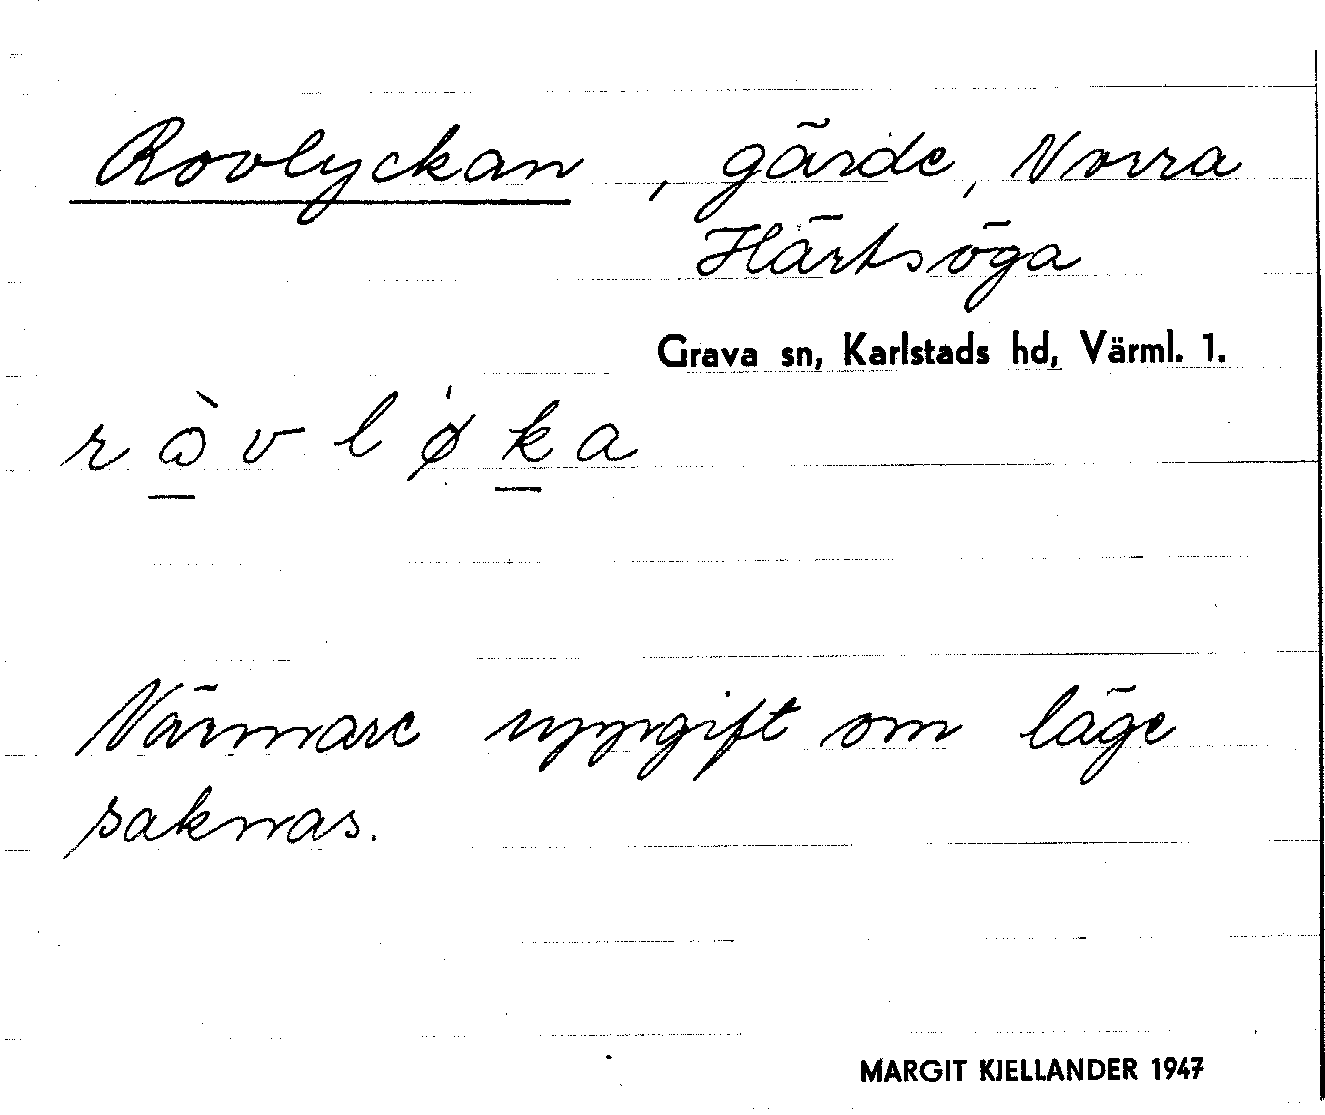 Rovlyckan, gärde, Norra
Härtsöga
Grava sn, Karlstads hd, Värml. 1.
r ò̱ v l ø̍ ḵ a
Närmare uppgift om läge
saknas.
MARGIT KJELLANDER 1947